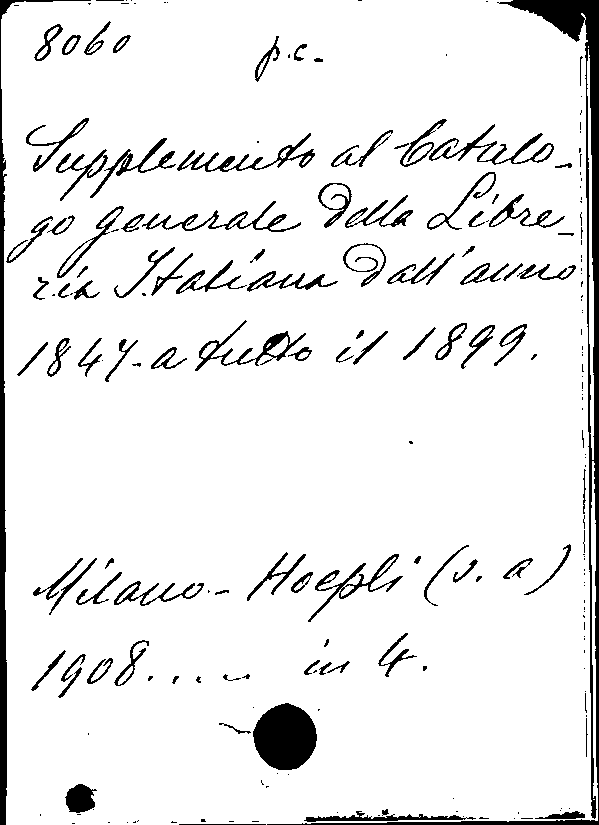 8060 p.c.
Supplemento al Catalo-
go generale della Libre-
ria Italiana dall'anno
1847-a tutto il 1899.
Milano - Hoepli (s. a)
1908..... in 4.